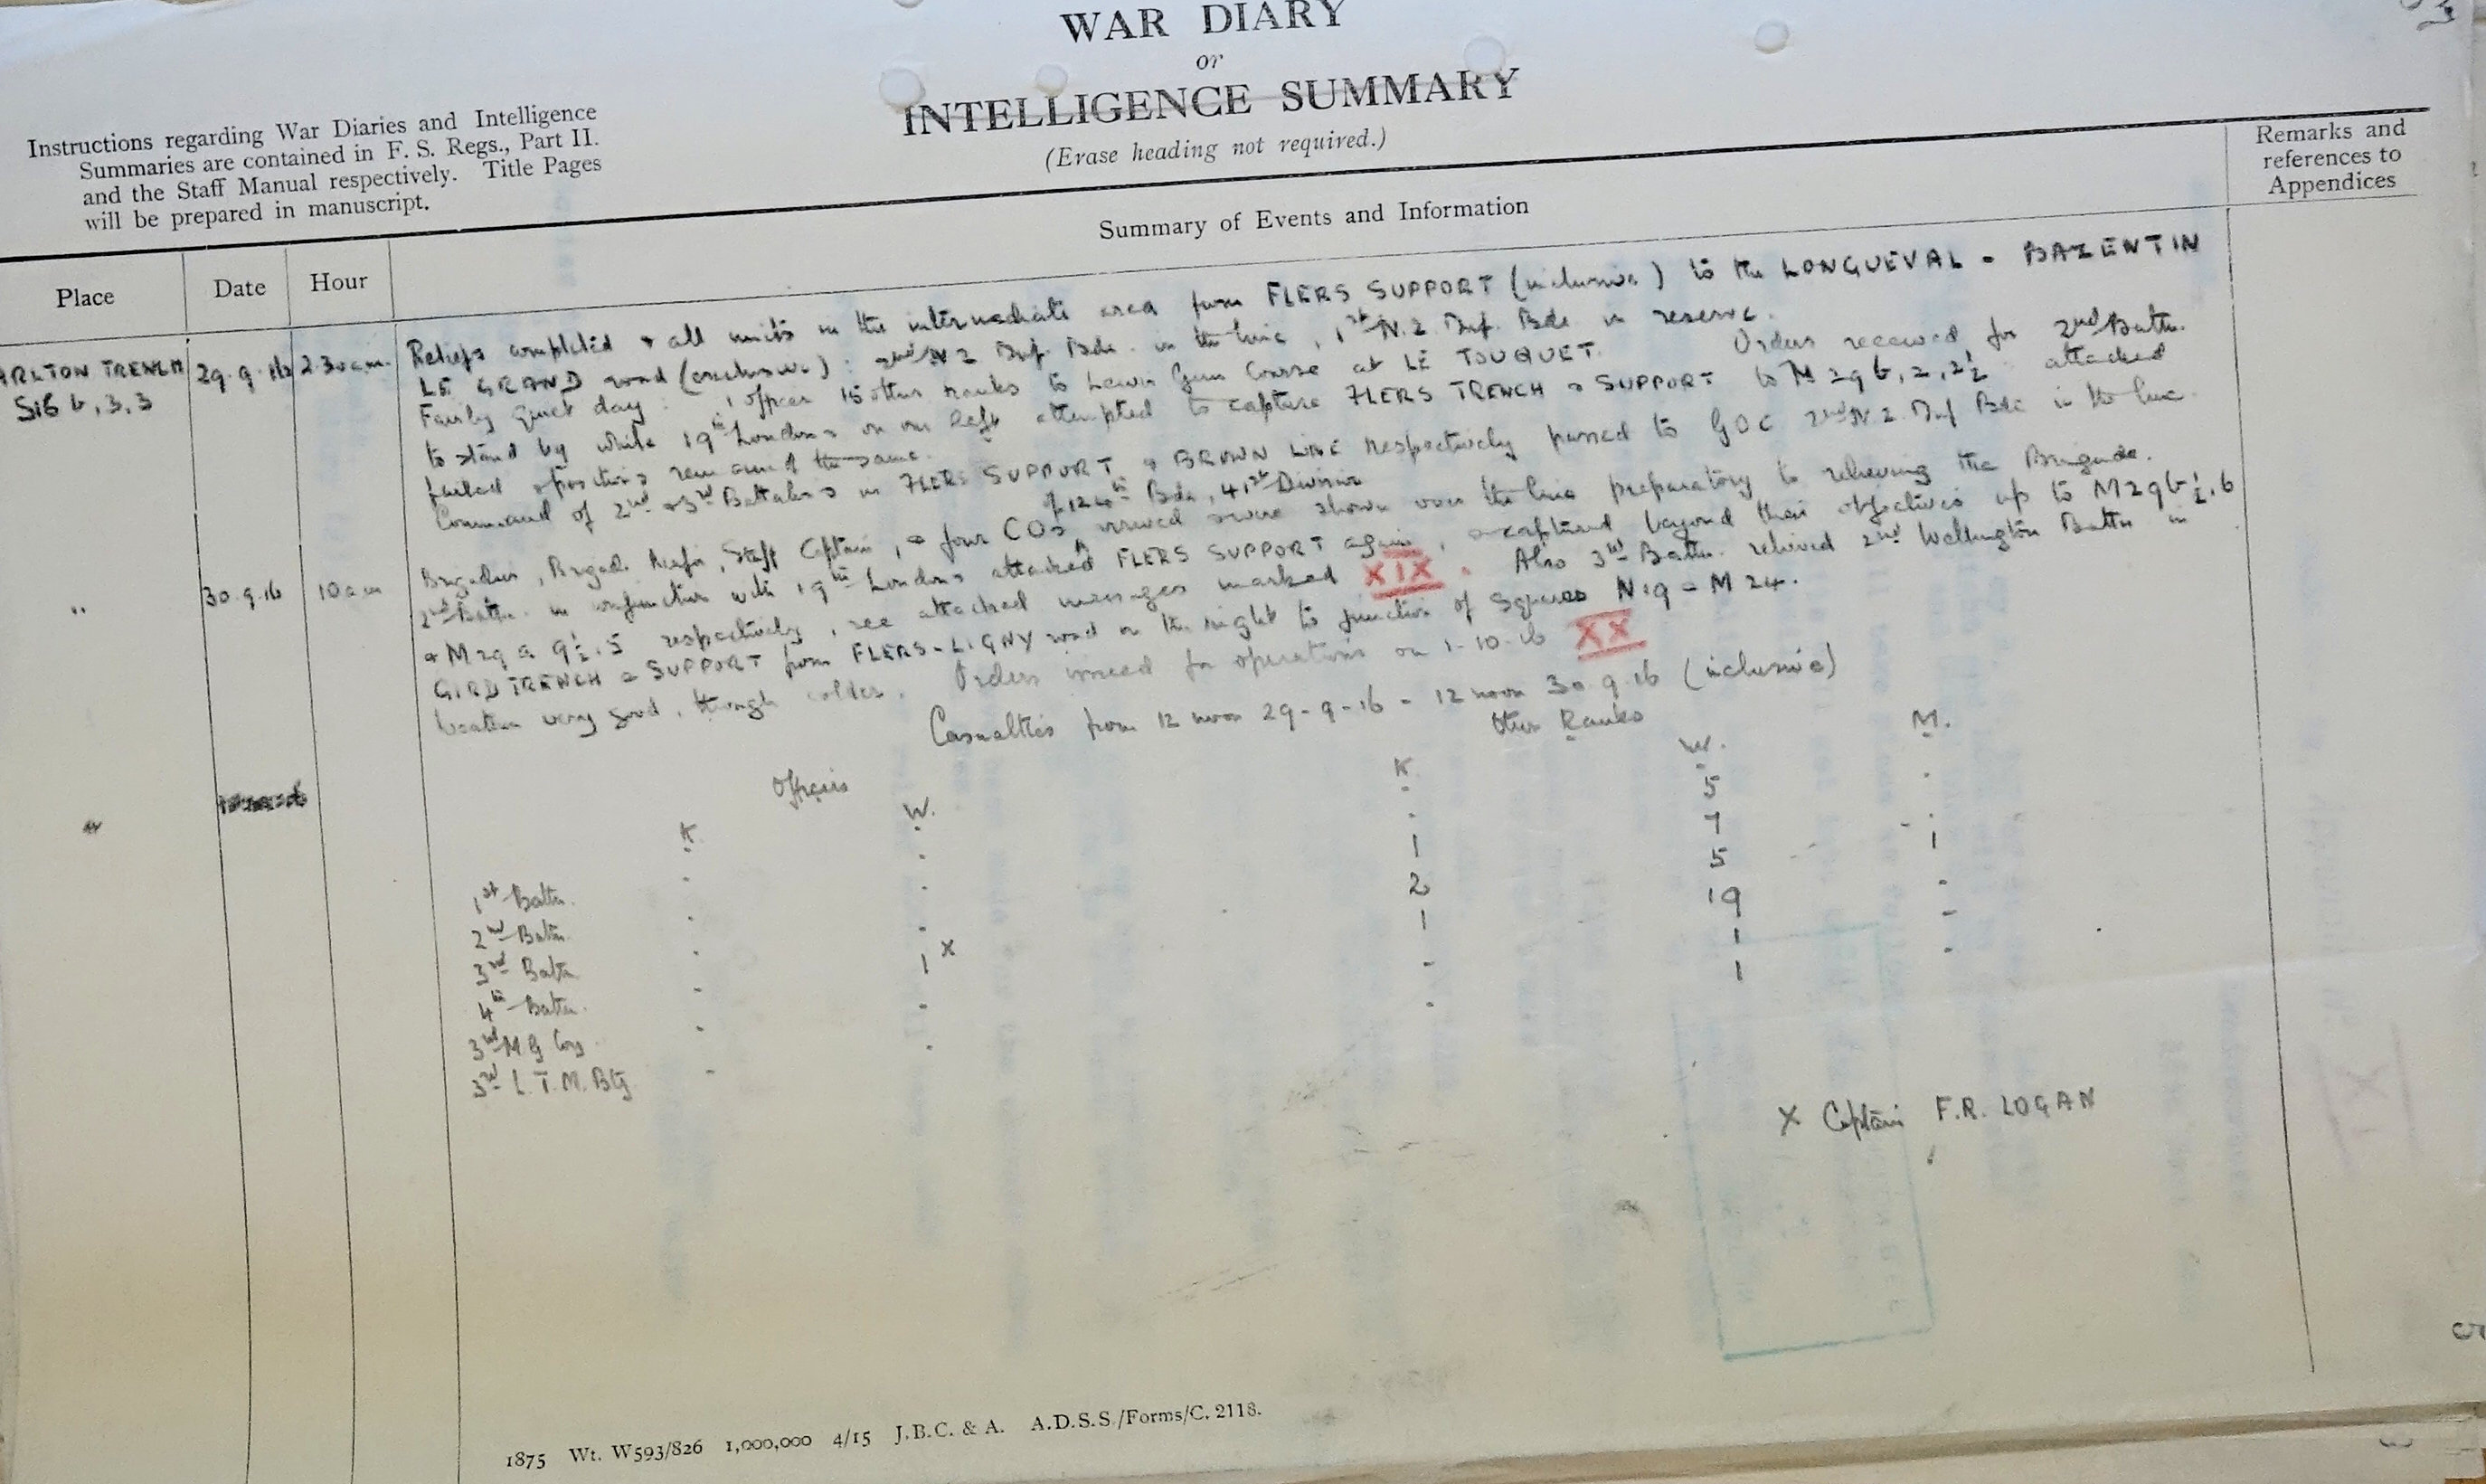 WAR DIARY
or
INTELLIGENCE SUMMARY
(Erase heading not required.)
Instructions regarding War Diaries and Intelligence
Summaries are contained in F. S. Regs., Part II.
and the Staff Manual respectively. Title Pages
will be prepared in manuscript.
Summary of Events and Information
Remarks and
references to
Appendices
Place Date Hour
ARLTON TRENCH 29.9.16 2.30 a.m.
S16 b, 3,3
Reliefs completed & all units in the intermediate area from FLERS SUPPORT (inclusive) to the LONGUEVAL - BAZENTIN
LE GRAND road (exclusive): 2nd N Z Inf. Bde. in the line, 1st N.Z. Inf. Bde in reserve.
Fairly quiet day: 1 officer 15 other ranks to Lewis Gun Course at LE TOUQUET. Orders received for 2nd Battn.
to stand by while 19th Londons on our left attempted to capture FLERS TRENCH & SUPPORT to M 29 b, 2, 2½ attacked
failed & positions remained the same.
Command of 2nd & 3rd Battalions in FLERS SUPPORT & BROWN LINE respectively passed to GOC 2nd N Z Inf Bde in the line.
.. 30.9.16 10 a m
of 124th Bde, 41st Division
Brigadier, Brigade Major, Staff Captain, & four COs arrived & were shown over the line preparatory to relieving the Brigade.
2nd Battn. in conjunction with 19th Londons attacked FLERS SUPPORT again, & captured beyond their objectives up to M29b ½.6
& M 29 a 9½.5 respectively, see attached messages marked XIX. Also 3rd Battn. relieved 2nd Wellington Battn in
GIRD TRENCH & SUPPORT from FLERS-LIGNY road on the right to junction of Squares N19 - M 24.
Weather very good, though colder. Orders issued for operations on 1-10-16 XX
Casualties from 12 noon 29-9-16 - 12 noon 30.9.16 (inclusive)
Officers Other Ranks
K. W. K. W. M.
1st Battn. . . . 5 .
2nd Battn. . . 1 7 .
3rd Battn . . 2 5 1
4th Battn. . . 1 19 -
3rd M G Coy . 1 x - 1 -
3rd L.T.M. Bty - . . 1 -
X Captain F.R. LOGAN
1875 Wt. W593/826 1,000,000 4/15 J.B.C. & A. A.D.S.S./Forms/C. 2118.